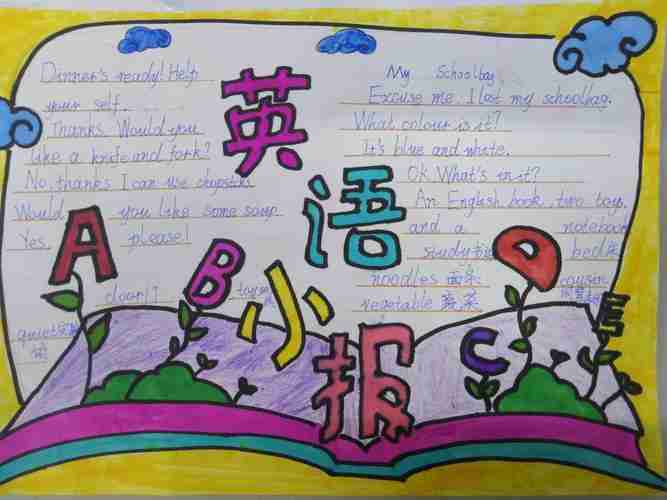 英语小报
Dinner's ready! Help
your self.
Thanks. Would you
like a knife and fork?
No, thanks. I can use chopsticks
Would you like some soup
Yes, please!
quiet
My Schoolbag.
Excuse me. I lost my schoolbag.
What colour is it?
It's blue and white.
OK. What's in it?
An English book, two toys,
and a notebook
study bed
noodles 面条
vegetable 蔬菜
A
B
C
D
E